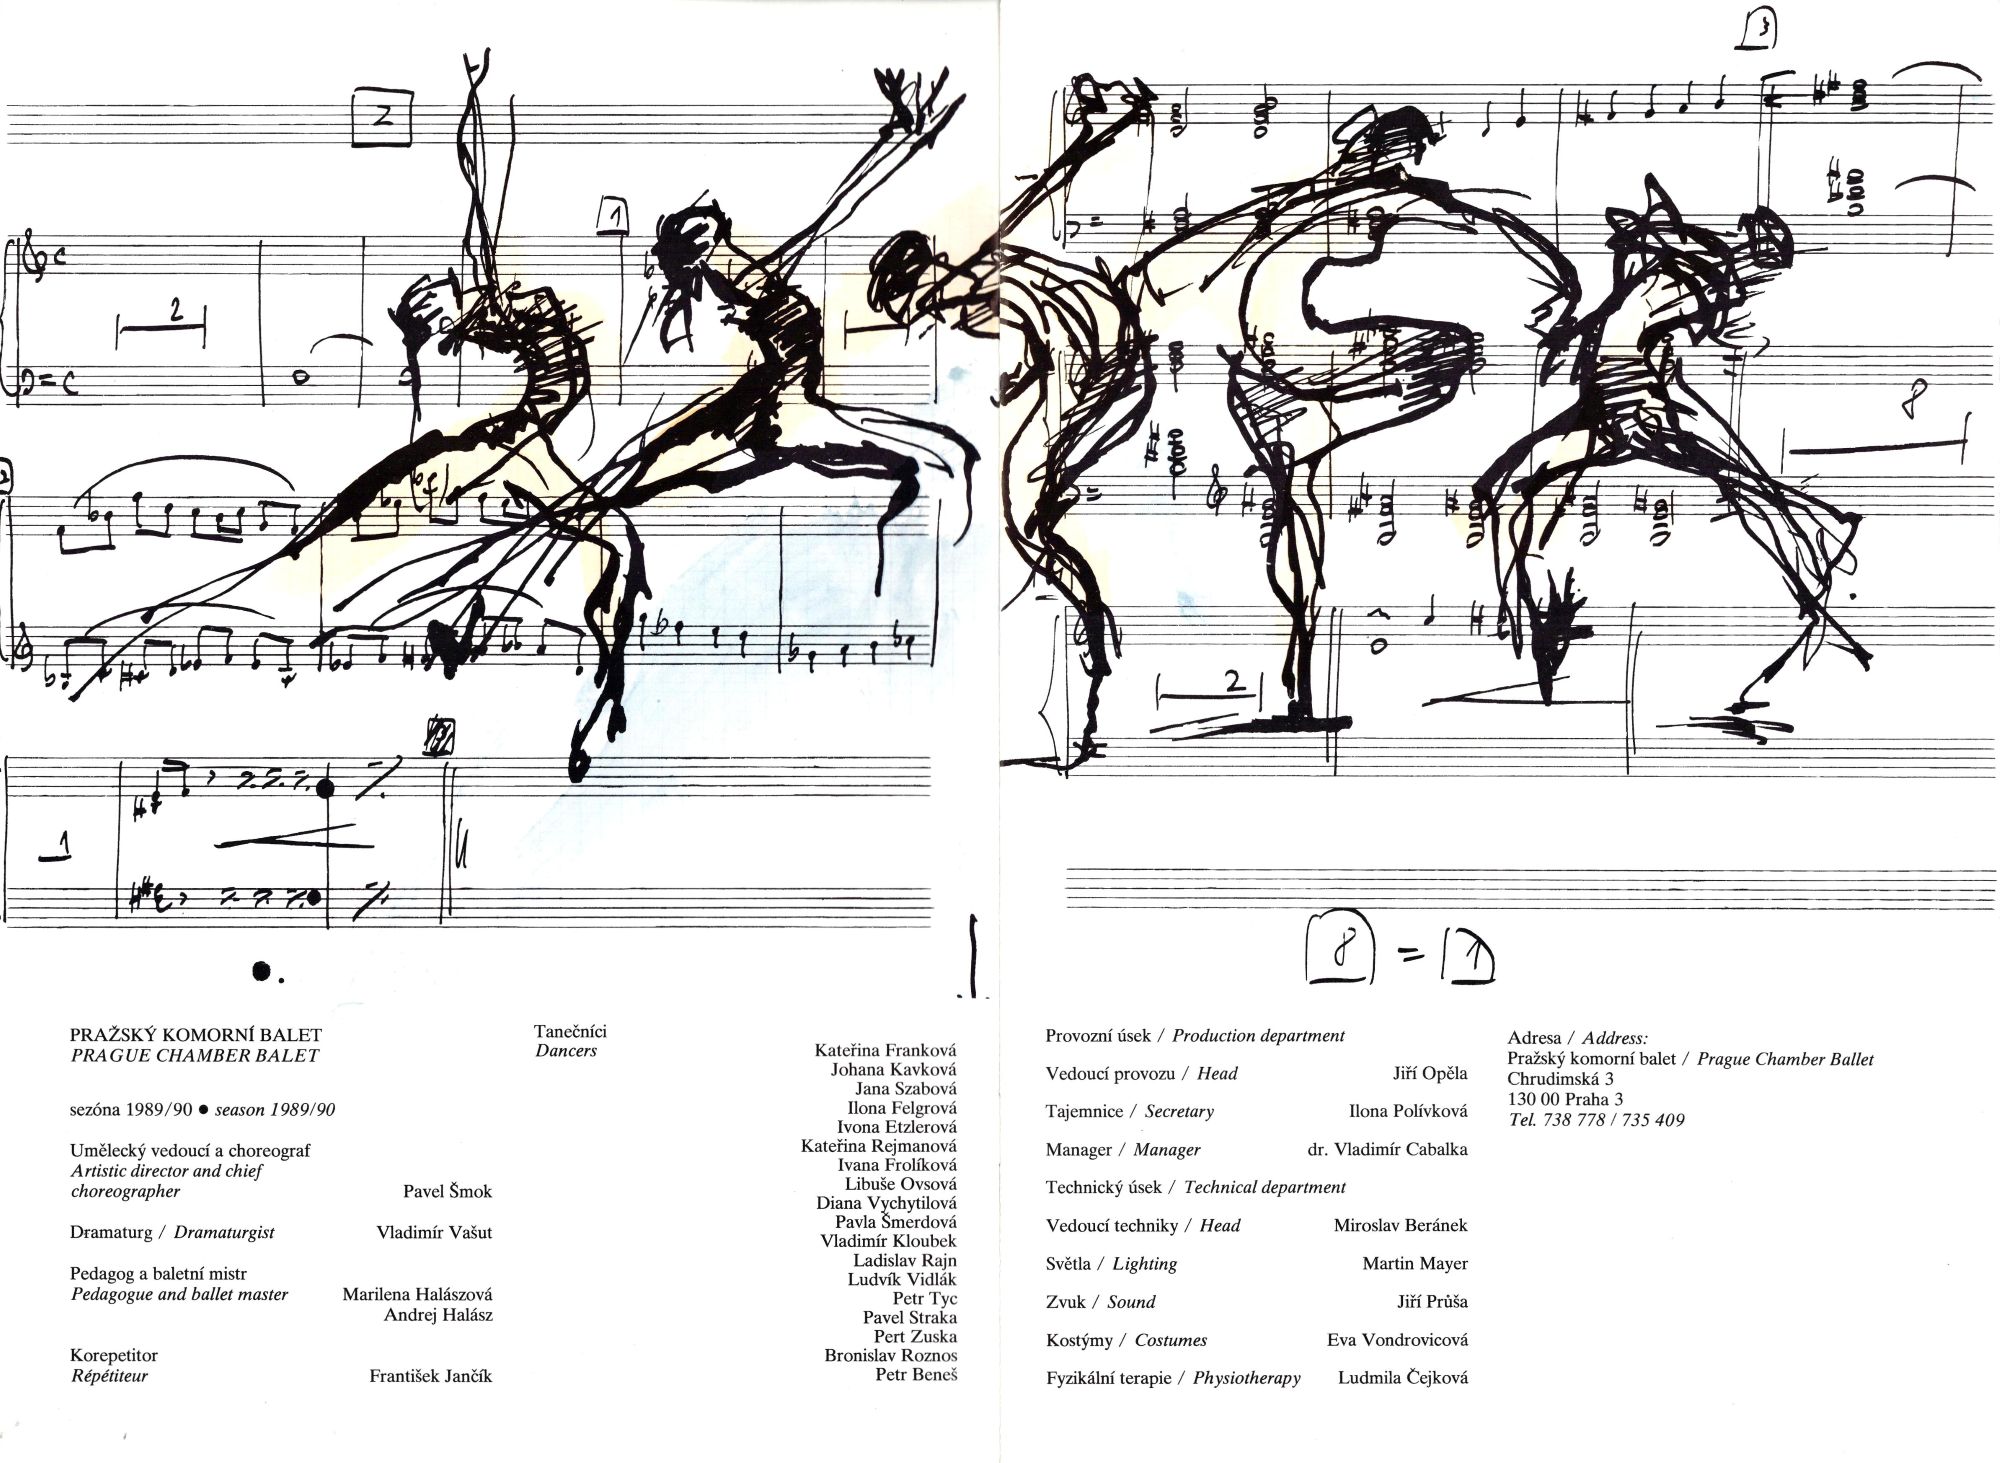 2
1
3
2
8
2
1
8 = 1
PRAŽSKÝ KOMORNÍ BALET
PRAGUE CHAMBER BALET
sezóna 1989/90 ● season 1989/90
Umělecký vedoucí a choreograf
Artistic director and chief
choreographer Pavel Šmok
Dramaturg / Dramaturgist Vladimír Vašut
Pedagog a baletní mistr
Pedagogue and ballet master Marilena Halászová
Andrej Halász
Korepetitor
Répétiteur František Jančík
Tanečníci
Dancers
Kateřina Franková
Johana Kavková
Jana Szabová
Ilona Felgrová
Ivona Etzlerová
Kateřina Rejmanová
Ivana Frolíková
Libuše Ovsová
Diana Vychytilová
Pavla Šmerdová
Vladimír Kloubek
Ladislav Rajn
Ludvík Vidlák
Petr Tyc
Pavel Straka
Pert Zuska
Bronislav Roznos
Petr Beneš
Provozní úsek / Production department
Vedoucí provozu / Head Jiří Opěla
Tajemnice / Secretary Ilona Polívková
Manager / Manager dr. Vladimír Cabalka
Technický úsek / Technical department
Vedoucí techniky / Head Miroslav Beránek
Světla / Lighting Martin Mayer
Zvuk / Sound Jiří Průša
Kostýmy / Costumes Eva Vondrovicová
Fyzikální terapie / Physiotherapy Ludmila Čejková
Adresa / Address:
Pražský komorní balet / Prague Chamber Ballet
Chrudimská 3
130 00 Praha 3
Tel. 738 778 / 735 409